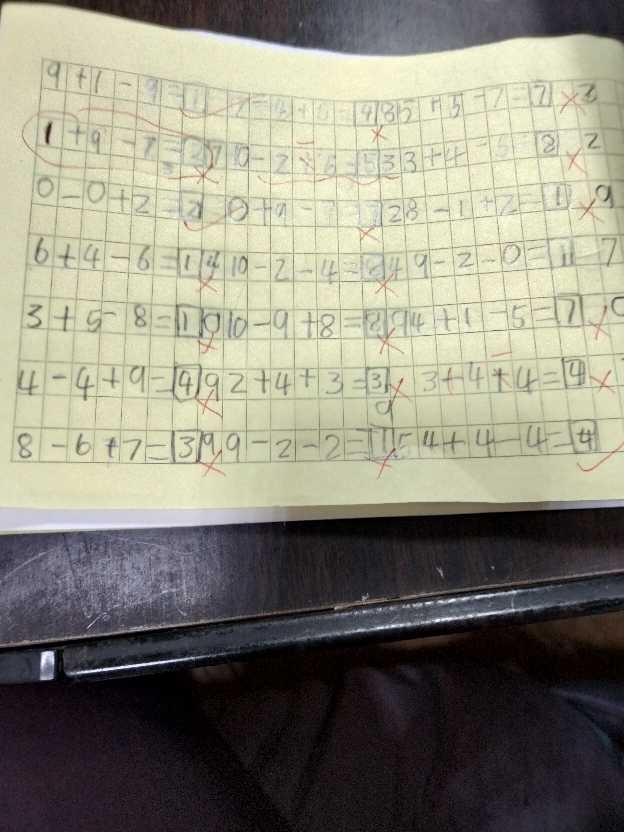 9+1-9=1 7=4+5=9 8 5+5-7=7 3
1+9-7=2 7 10-2+5=5 3 3+4-5=8 2
0-0+2=2 0+9-7=7 2 8-1+2=1 9
6+4-6=1 4 10-2-4=8 4 9-2-0=1 7
3+5-8=1 0 10-9+8=8 9 4+1-5=7 0
4-4+9=4 9 2+4+3=3 9 3+4+4=4
8-6+7=3 9 9-2-2=1 5 4+4-4=4